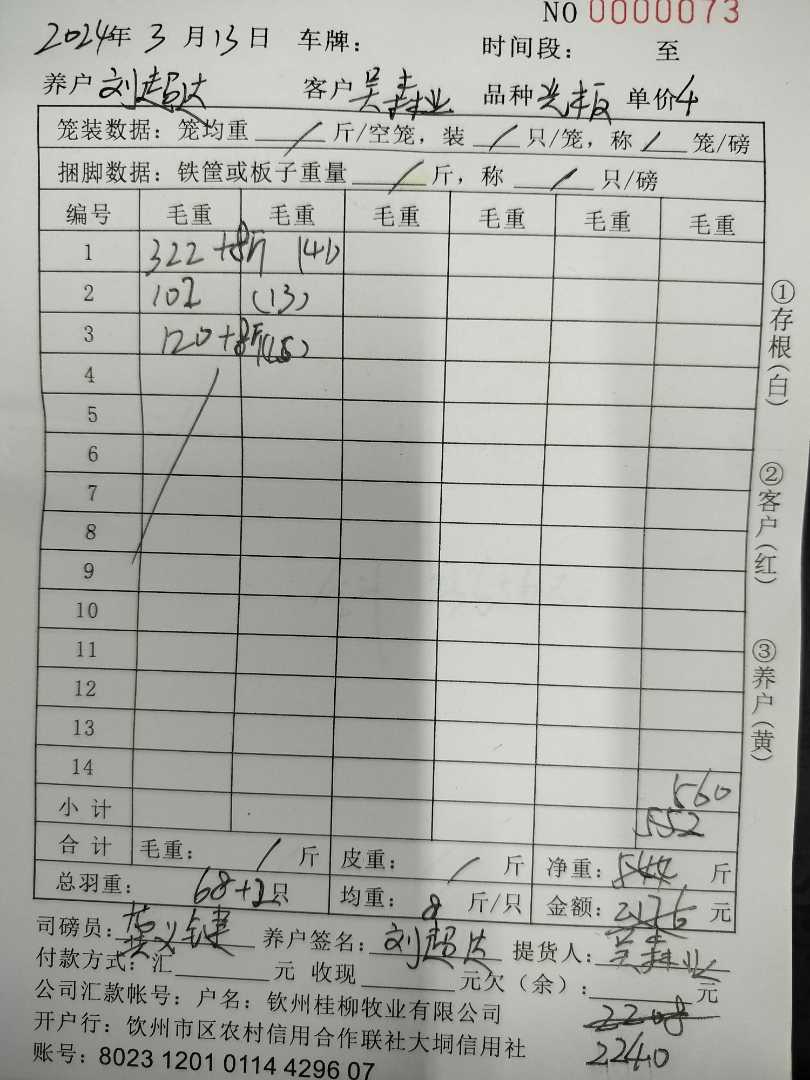 NO 0000073
2024年 3 月 13 日 车牌： 时间段： 至
养户 刘超达 客户 吴森业 品种 光板 单价 4
笼装数据：笼均重 / 斤/空笼，装 / 只/笼，称 / 笼/磅
捆脚数据：铁筐或板子重量 / 斤，称 / 只/磅
编号 毛重 毛重 毛重 毛重 毛重 毛重
1 322+8斤 (41)
2 102 (13)
3 120+8斤(15)
4
5
6
7
8
9
10
11
12
13
14 560
小计 552
合计 毛重： / 斤 皮重： / 斤 净重：544 斤
总羽重： 68+2只 均重：8 斤/只 金额：2176 元
司磅员： 养户签名：刘超达 提货人：吴森业
付款方式：汇 元 收现 元欠（余）： 元
公司汇款帐号：户名：钦州桂柳牧业有限公司 2208
开户行：钦州市区农村信用合作联社大垌信用社 2240
账号：8023 1201 0114 4296 07
①存根(白)
②客户(红)
③养户(黄)